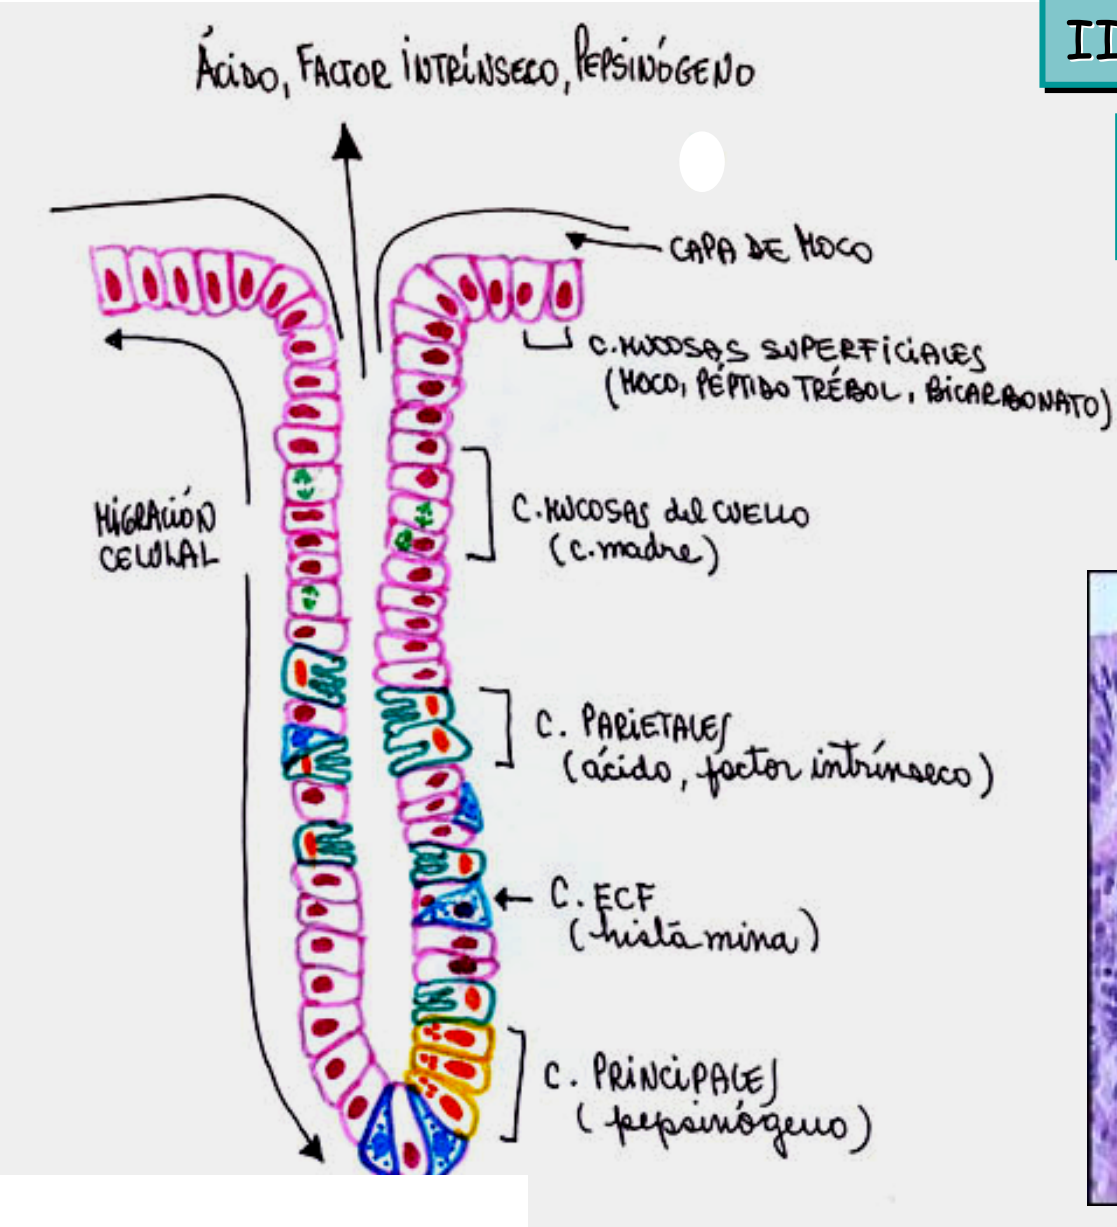 ÁCIDO, FACTOR INTRÍNSECO, PEPSINÓGENO
II
CAPA DE MOCO
C. MUCOSAS SUPERFICIALES
(MOCO, PÉPTIDO TRÉBOL, BICARBONATO)
MIGRACIÓN
CELULAL
C. MUCOSAS del CUELLO
(c. madre)
C. PARIETALES
(ácido, factor intrínseco)
C. ECF
(histamina)
C. PRINCIPALES
(pepsinógeno)